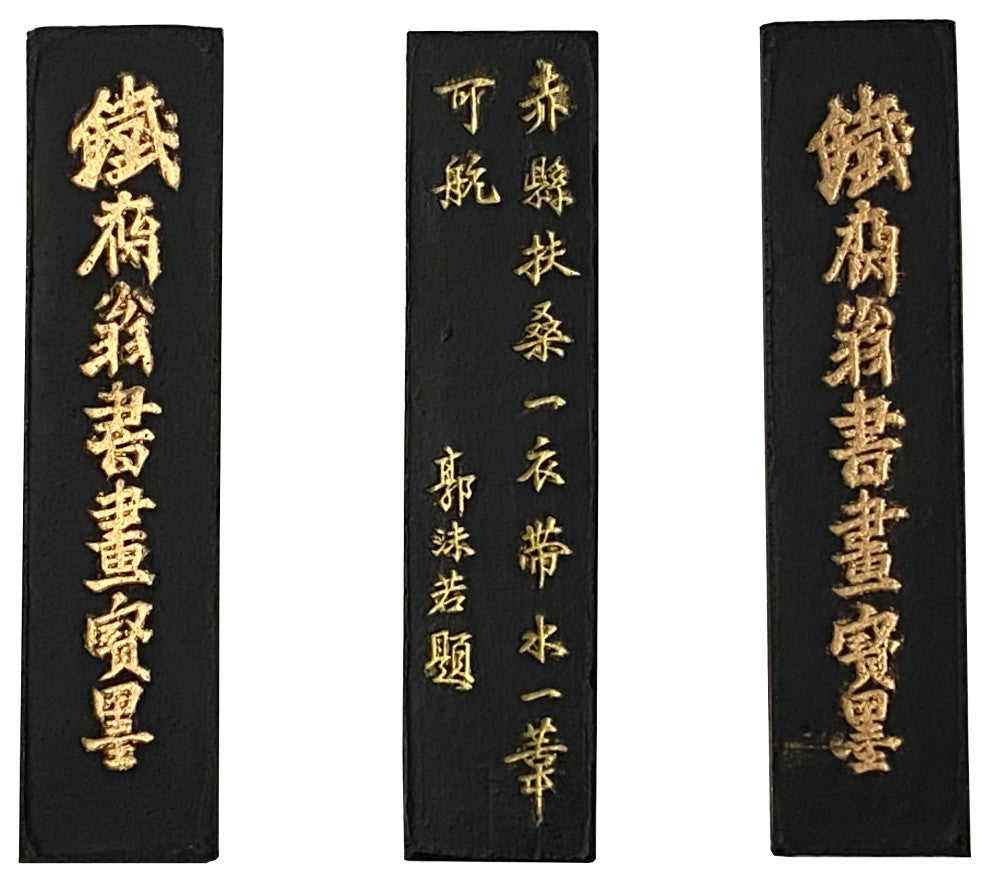 鐵齋翁書畫寳墨
赤縣扶桑一衣帶水一葦
可航
郭沫若題
鐵齋翁書畫寳墨